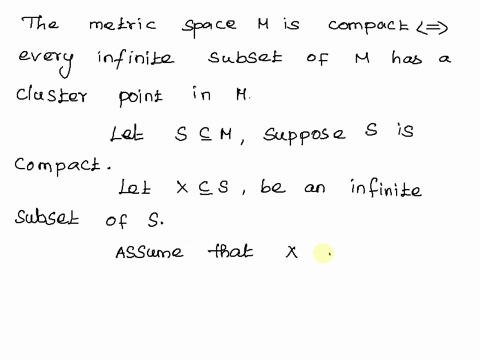 The metric space M is compact <=>
every infinite subset of M has a
cluster point in M.
Let S ⊆ M, suppose S is
compact.
Let X ⊆ S, be an infinite
subset of S.
Assume that X